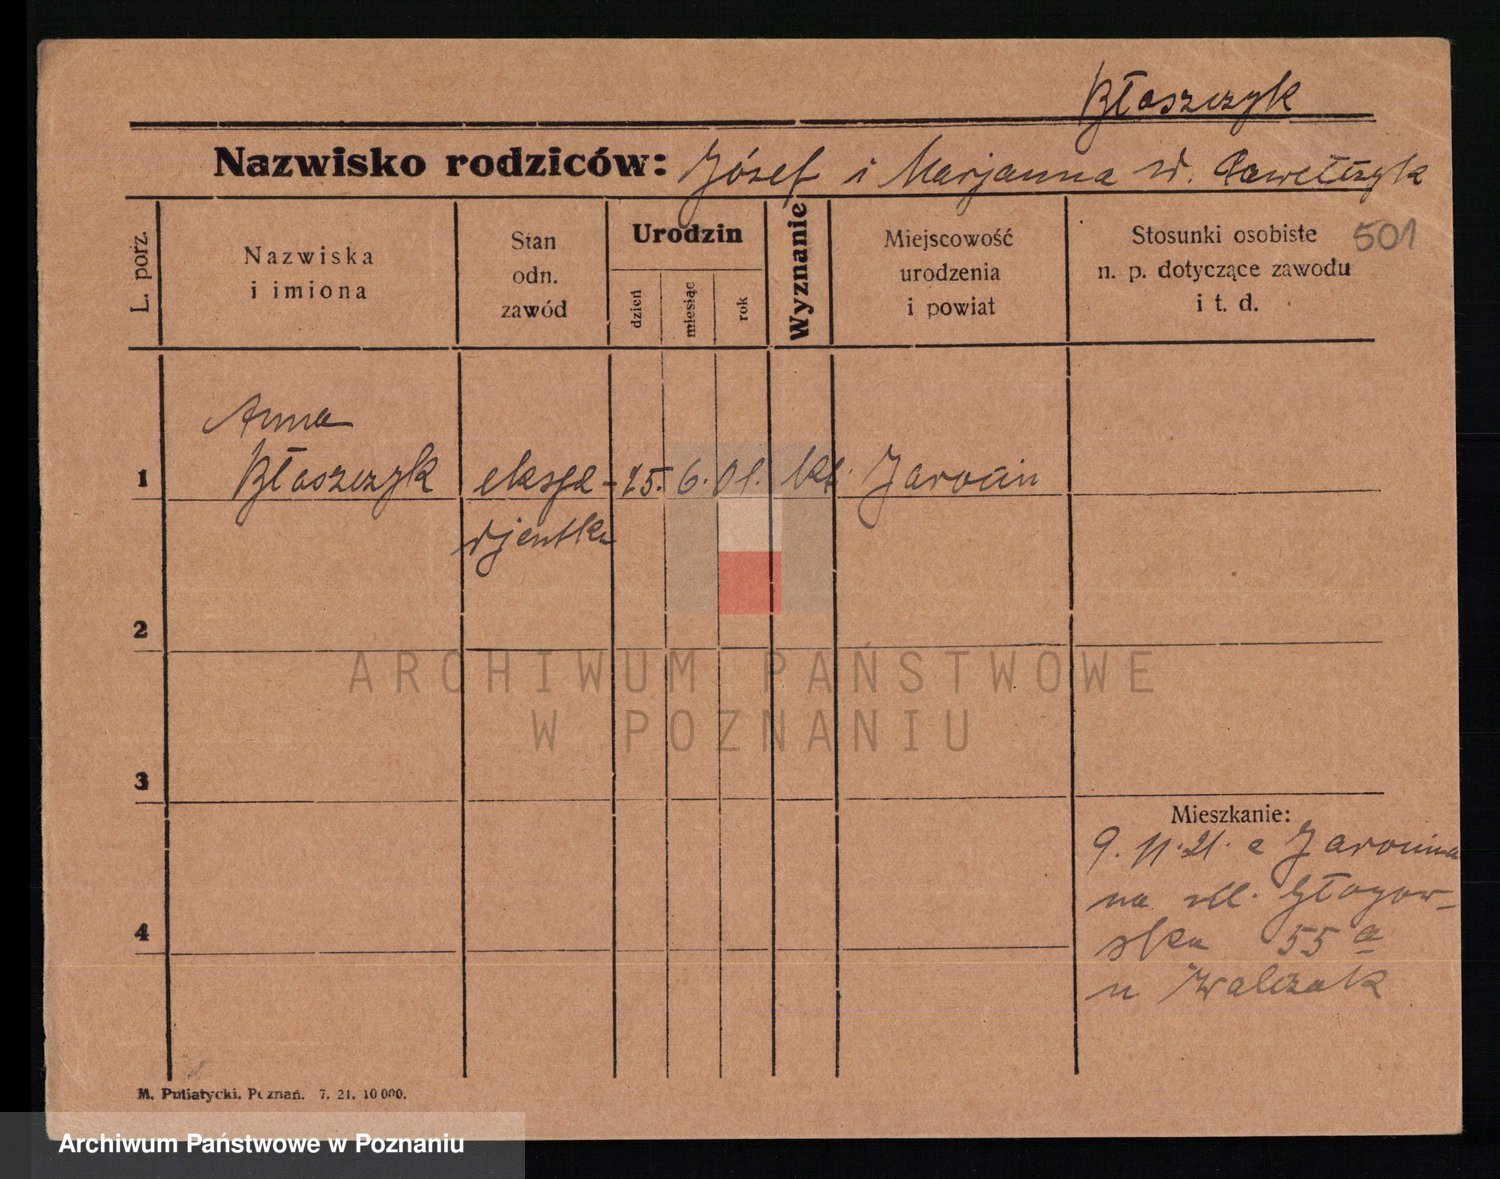 Błaszczyk
Nazwisko rodziców: Józef i Marjanna
501
L. porz.
Nazwiska
i imiona
Stan
odn.
zawód
Urodzin
dzień
miesiąc
rok
Wyznanie
Miejscowość
urodzenia
i powiat
Stosunki osobiste
n. p. dotyczące zawodu
i t. d.
Anna
1 Błaszczyk ekspe- 25. 6. 01. kt. Jarocin
djentka
2
ARCHIWUM PAŃSTWOWE
W POZNANIU
3
Mieszkanie:
9. 11. 21. z Jarocina
na ul. Głogow-
4
ska 55 a
u Walczak
M. Putiatycki. Poznań. 7. 21. 10 000.
Archiwum Państwowe w Poznaniu